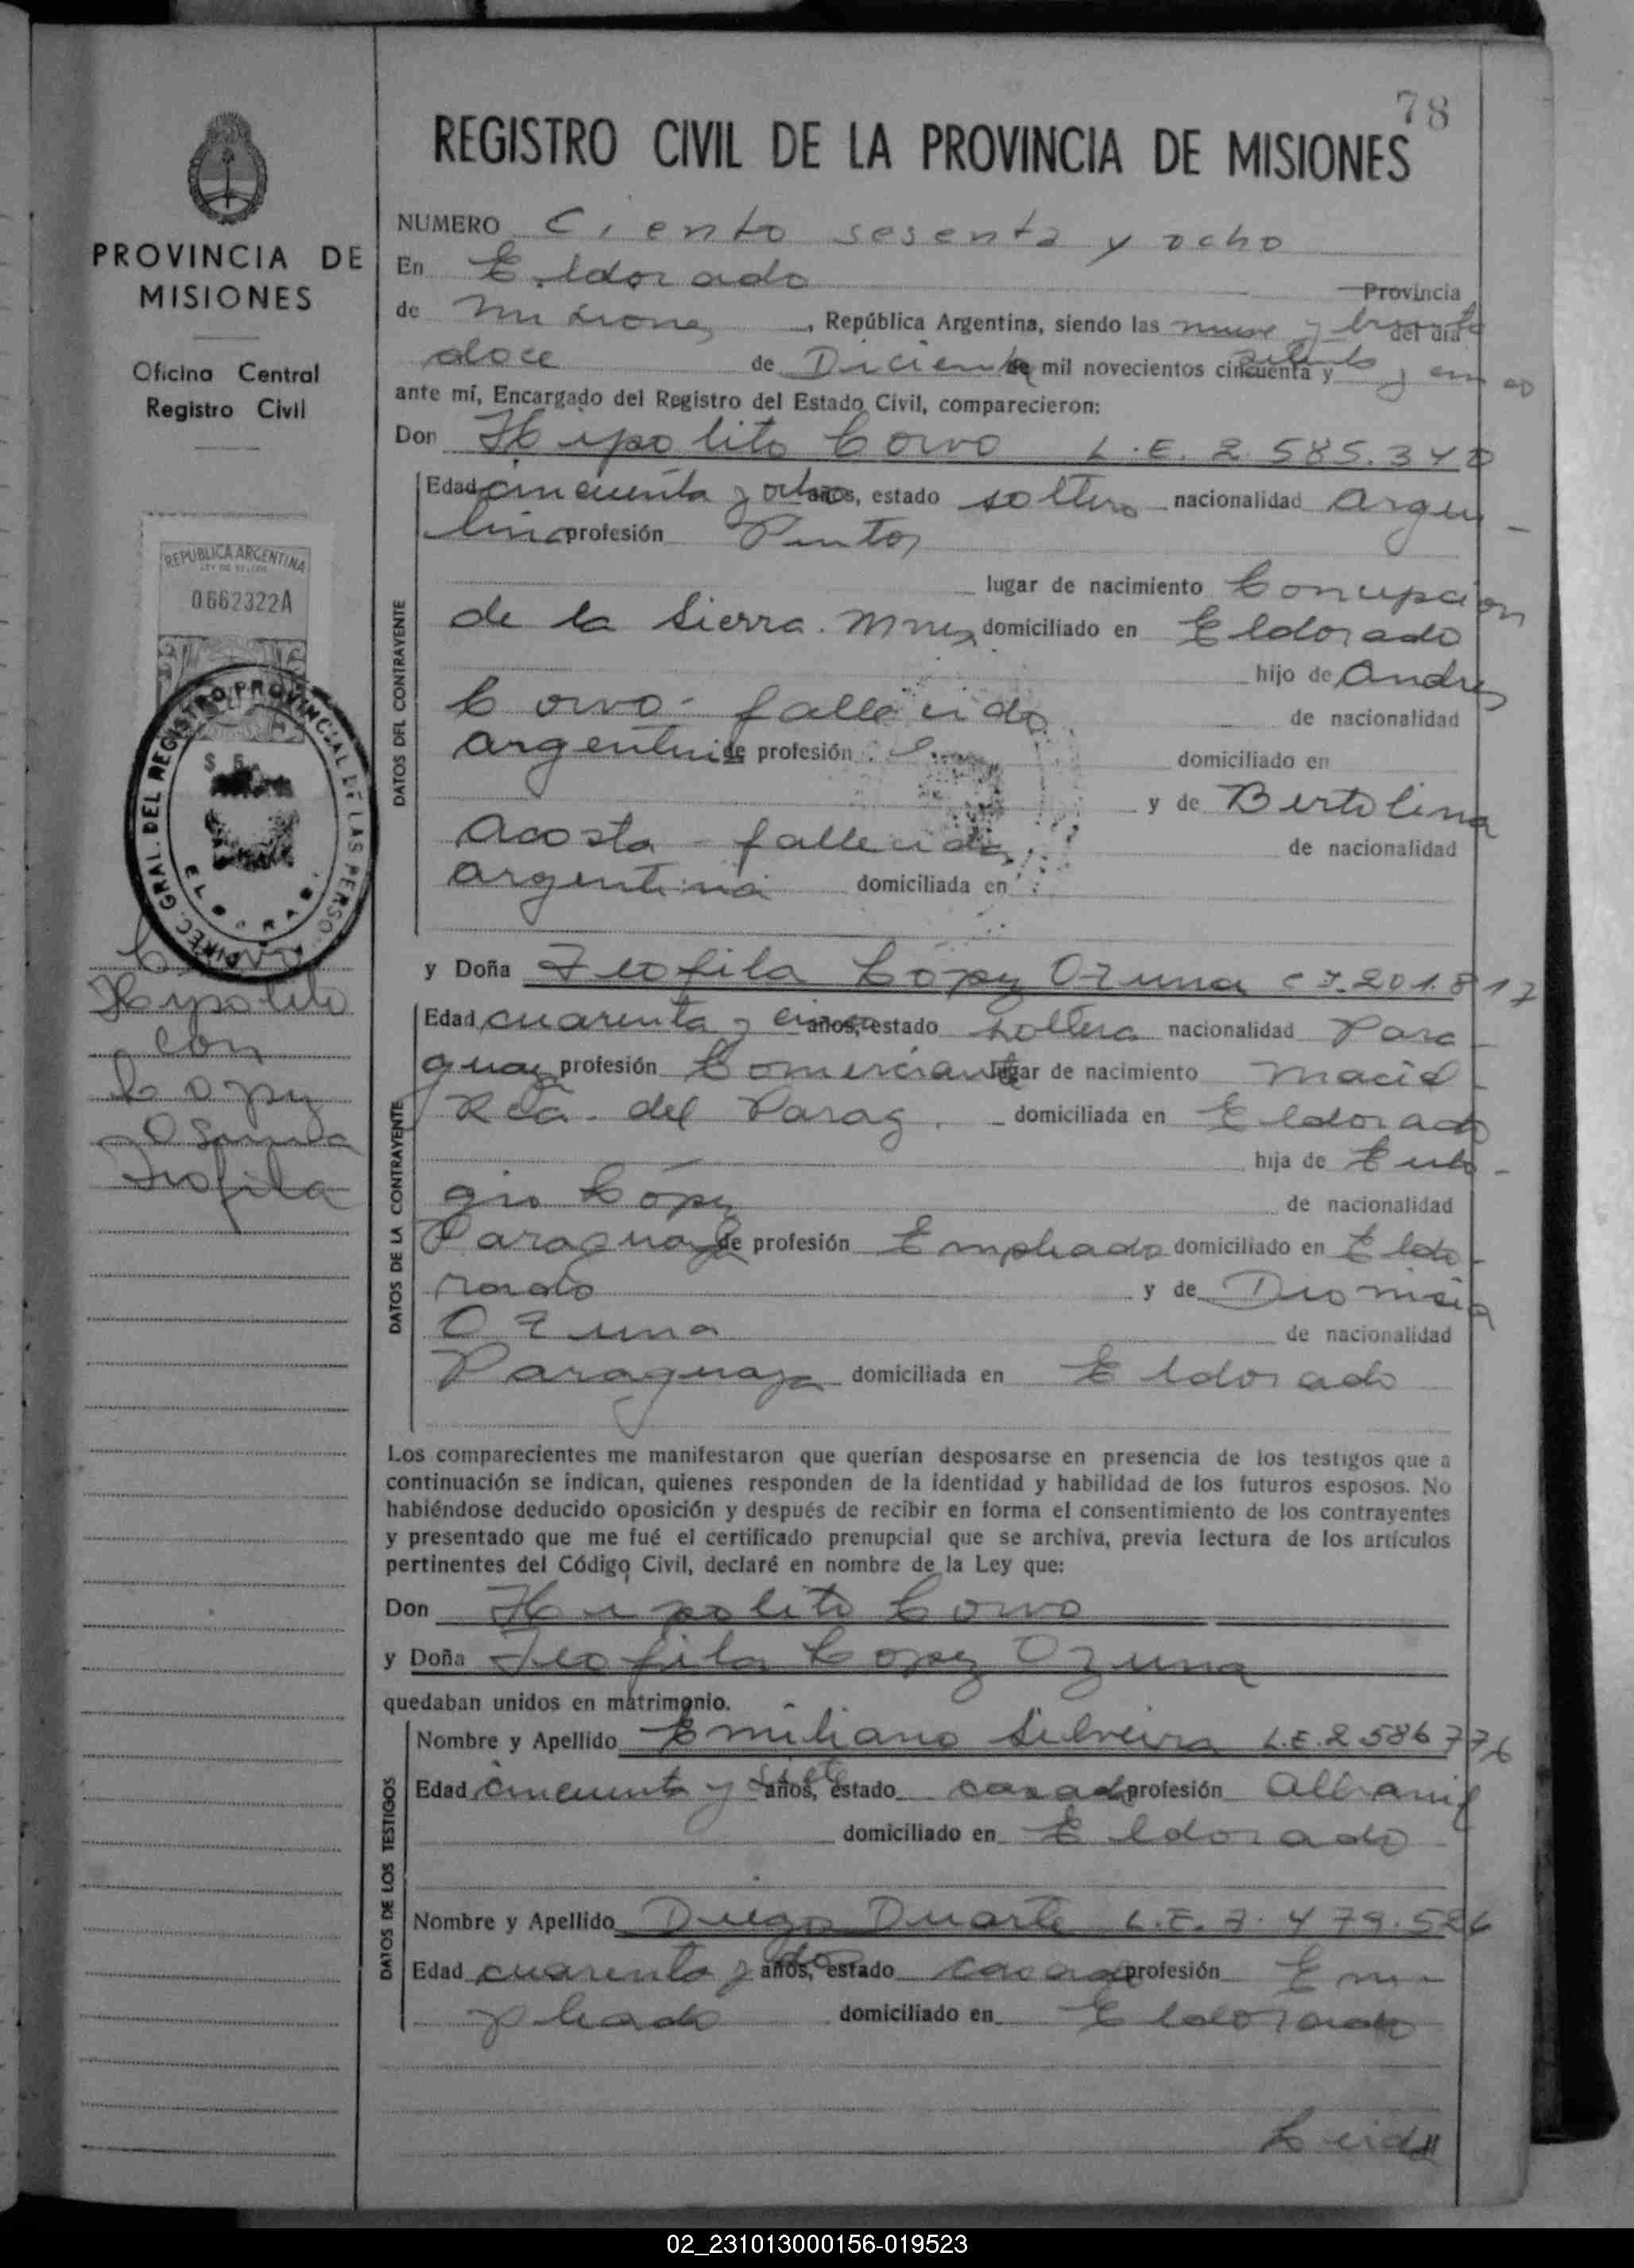 78
REGISTRO CIVIL DE LA PROVINCIA DE MISIONES
PROVINCIA DE
MISIONES
Oficina Central
Registro Civil
REPUBLICA ARGENTINA
LEY DE SELLOS
0662322A
$ 5
DIREC. GRAL. DEL REGISTRO PROVINCIAL DE LAS PERSO
Corvo
Hipolito
con
Lopez
Teofila
NUMERO Ciento sesenta y ocho
En Eldorado
Provincia
de Misiones, República Argentina, siendo las nueve y treinta del día
doce de Diciembre de mil novecientos cincuenta y setenta y cinco
ante mí, Encargado del Registro del Estado Civil, comparecieron:
Don Hipolito Corvo L.E. 2.585.340
DATOS DEL CONTRAYENTE
Edad cincuenta y ocho años, estado soltero nacionalidad Argen-
tina profesión Pintor
lugar de nacimiento Concepcion
de la Sierra. Mnes domiciliado en Eldorado
hijo de Andres
Corvo - fallecido de nacionalidad
argentino de profesión domiciliado en
y de Bertolina
Acosta - fallecida de nacionalidad
argentina domiciliada en
y Doña Teofila López Ozuna C.I. 201.817
DATOS DE LA CONTRAYENTE
Edad cuarenta y cinco años, estado soltera nacionalidad Para-
guay profesión Comerciante lugar de nacimiento Maciel
Rca. del Parag. domiciliada en Eldorado
hija de Eulo-
gio López de nacionalidad
Paraguaya de profesión Empleado domiciliado en Eldo-
rado y de Dionisia
Ozuna de nacionalidad
Paraguaya domiciliada en Eldorado
Los comparecientes me manifestaron que querían desposarse en presencia de los testigos que a
continuación se indican, quienes responden de la identidad y habilidad de los futuros esposos. No
habiéndose deducido oposición y después de recibir en forma el consentimiento de los contrayentes
y presentado que me fué el certificado prenupcial que se archiva, previa lectura de los artículos
pertinentes del Código Civil, declaré en nombre de la Ley que:
Don Hipolito Corvo
y Doña Teofila Lopez Ozuna
quedaban unidos en matrimonio.
DATOS DE LOS TESTIGOS
Nombre y Apellido Emiliano Silveira L.E. 2586776
Edad cincuenta y siete años, estado casado profesión Albanil
domiciliado en Eldorado
Nombre y Apellido Diego Duarte L.E. 7.479.526
Edad cuarenta y dos años, estado casado profesión Em-
pleado domiciliado en Eldorado
Leida
02_231013000156-019523